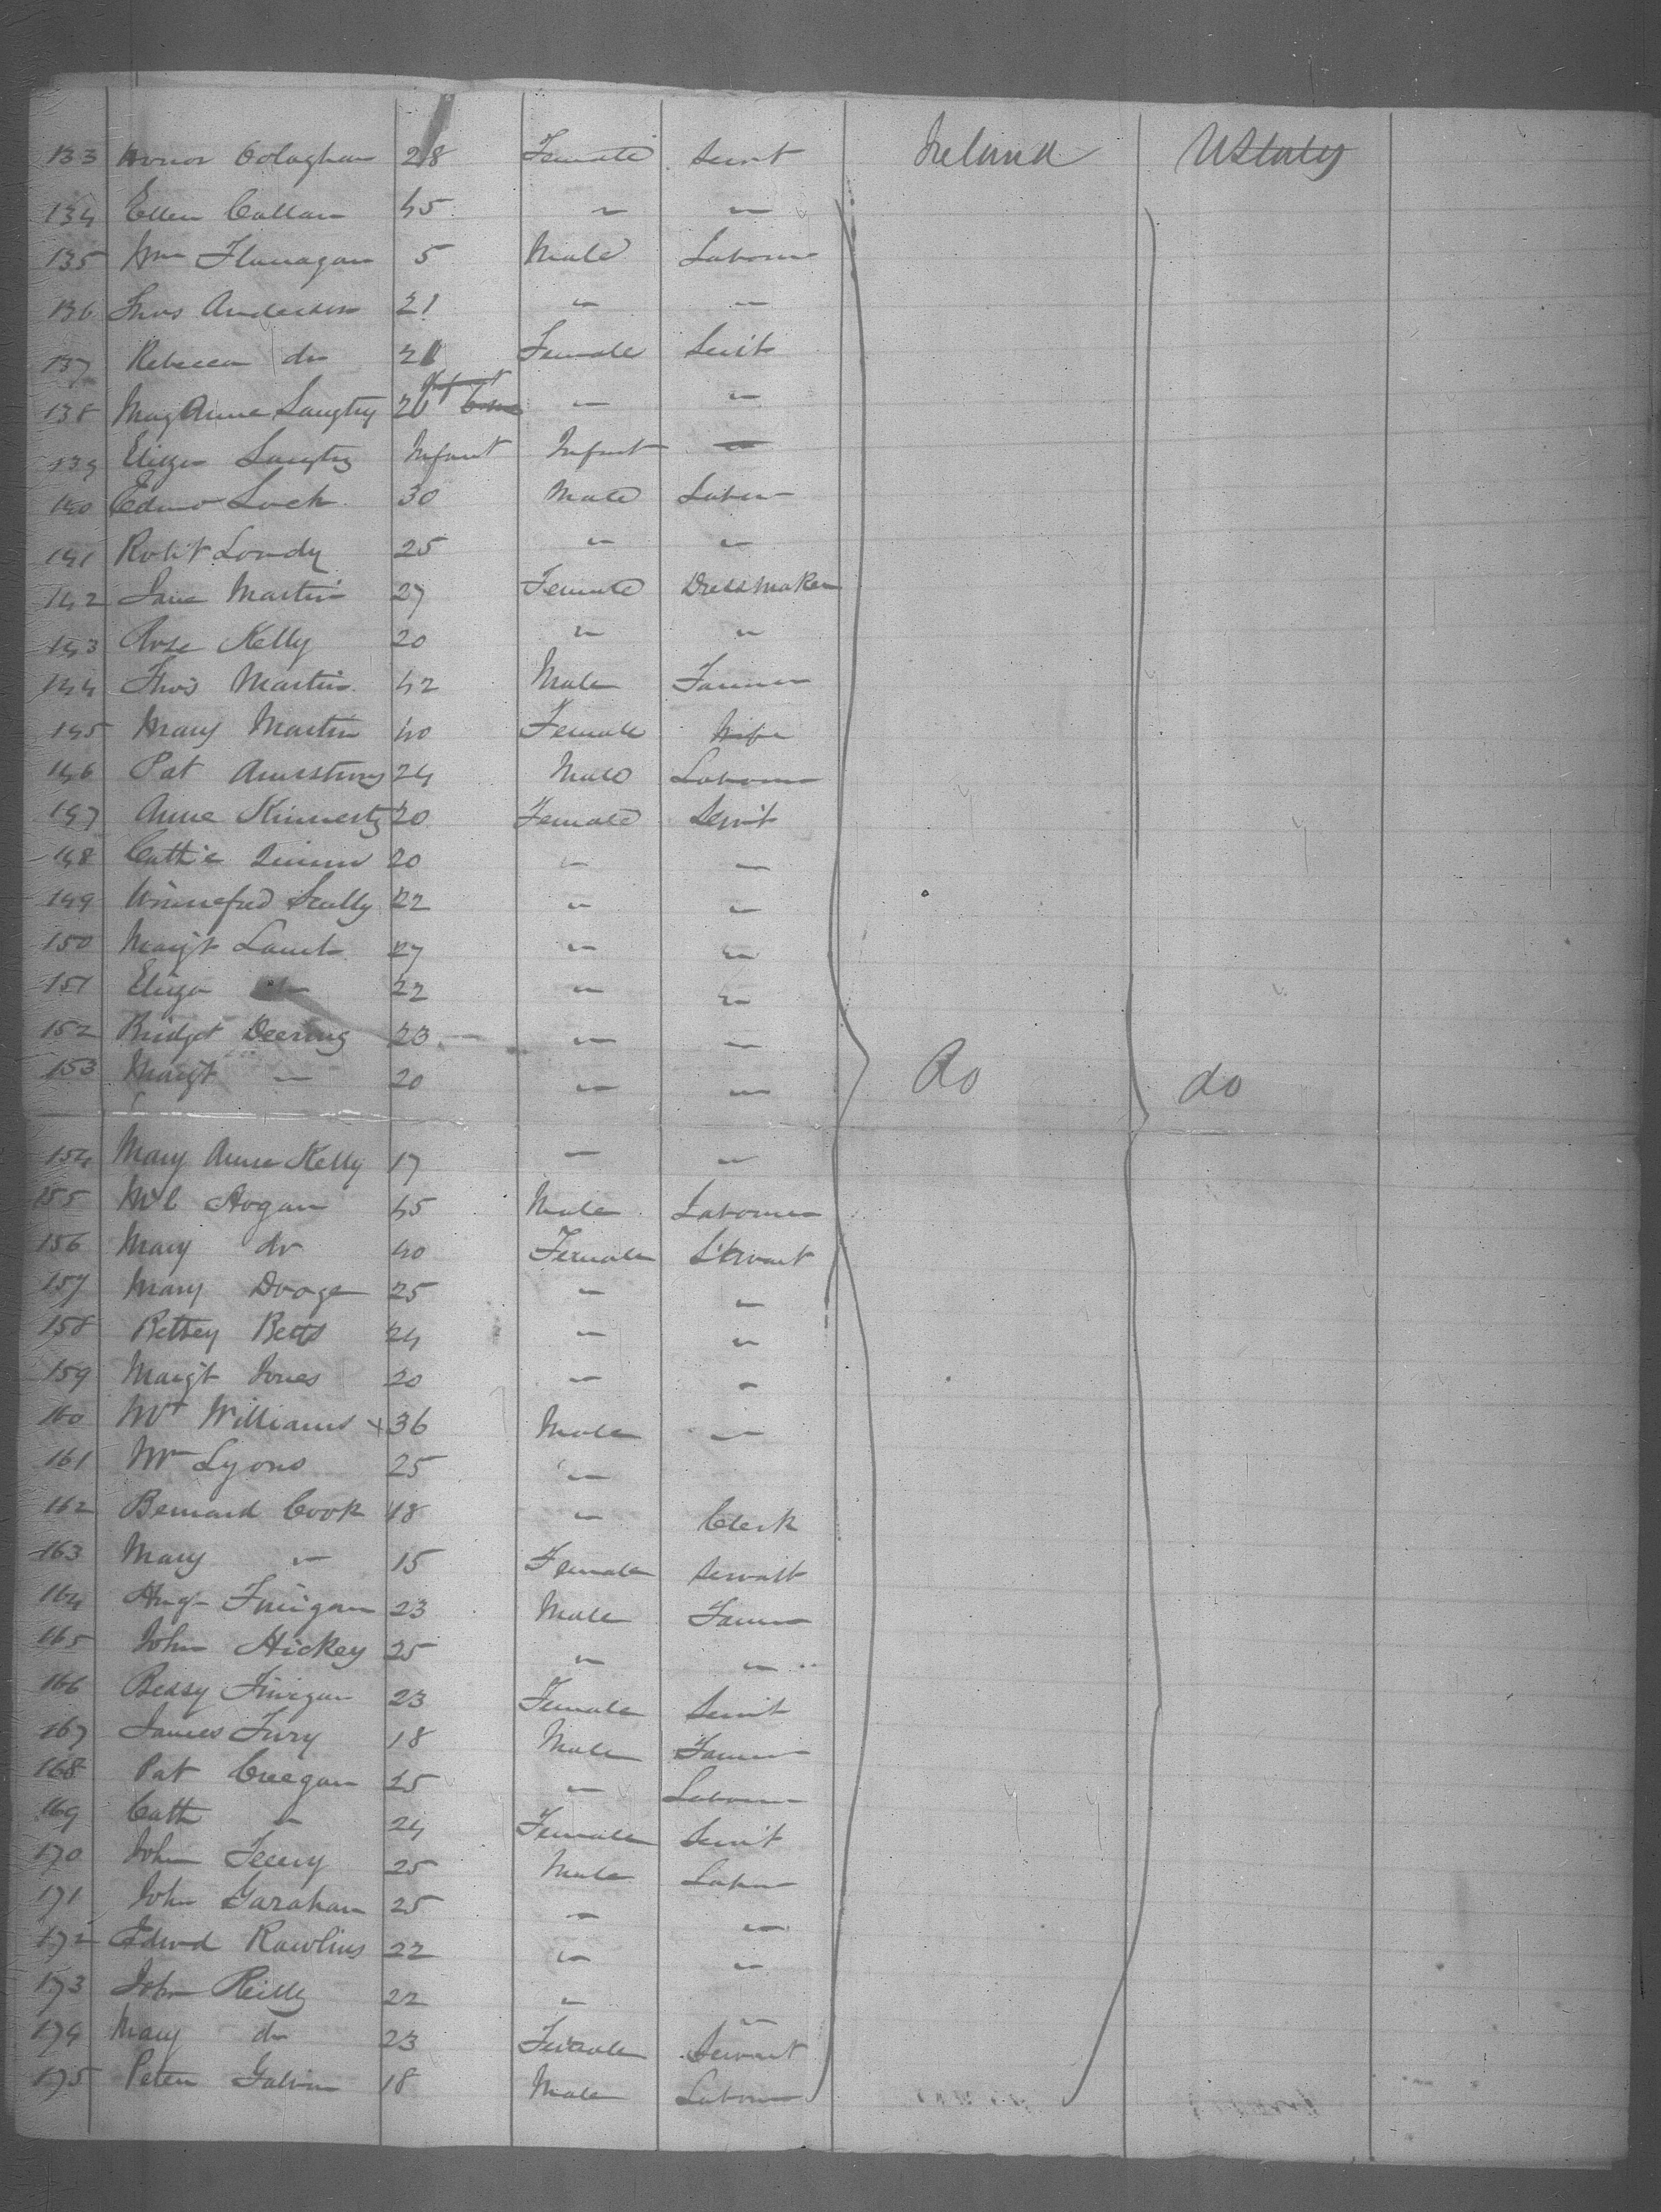 133 Honor Colaghan 28 Female Servt Ireland UStates
134 Ellen Callan 45 " "
135 Wm Flanagan 5 Male Labourer
136 Thos Anderson 21 " "
137 Rebecca do 21 Female Servt
138 Mary Anne Langtry 20 " "
139 Eliza Langtry Infant Infant "
140 Edwd Lock 30 Male Labour
141 Robt Loudy 25 " "
142 Jane Martin 27 Female Dressmaker
143 Rose Kelly 20 " "
144 Thos Martin 42 Male Farmer
145 Mary Martin 40 Female Wife
146 Pat Armstrong 24 Male Labourer
147 Anne Kinnerty 20 Female Servt
148 Cathe Quinn 20 " "
149 Winnefred Scully 22 " "
150 Margt Lamb 27 " "
151 Eliza " 22 " "
152 Bridget Deering 23 " "
153 Margt " 20 " " do do
154 Mary Anne Kelly 17 " "
155 Ml Hogan 45 Male Labourer
156 Mary do 40 Female Servant
157 Mary Dooge 25 " "
158 Betsey Betts 24 " "
159 Margt Jones 20 " "
160 Mr Williams x 36 Male "
161 Mr Lyons 25 "
162 Bernard Cook 18 " Clerk
163 Mary " 15 Female Servant
164 Hugh Finigan 23 Male Farmer
165 John Hickey 25 " "
166 Bessy Finigan 23 Female Servt
167 James Fury 18 Male Farmer
168 Pat Creegan 25 " Labourer
169 Cath " 24 Female Servt
170 John Feeny 25 Male Labour
171 John Garahan 25 " "
172 Edwd Rawlins 22 " "
173 John Reilly 22 " "
174 Mary do 23 Female Servant
175 Peter Galvin 18 Male Labourer